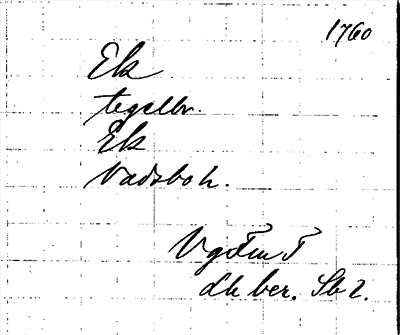 1760
Ek
tegelbr.
Ek
Vadsbo h.
Vg Fm T
dh ber. Sb 2.